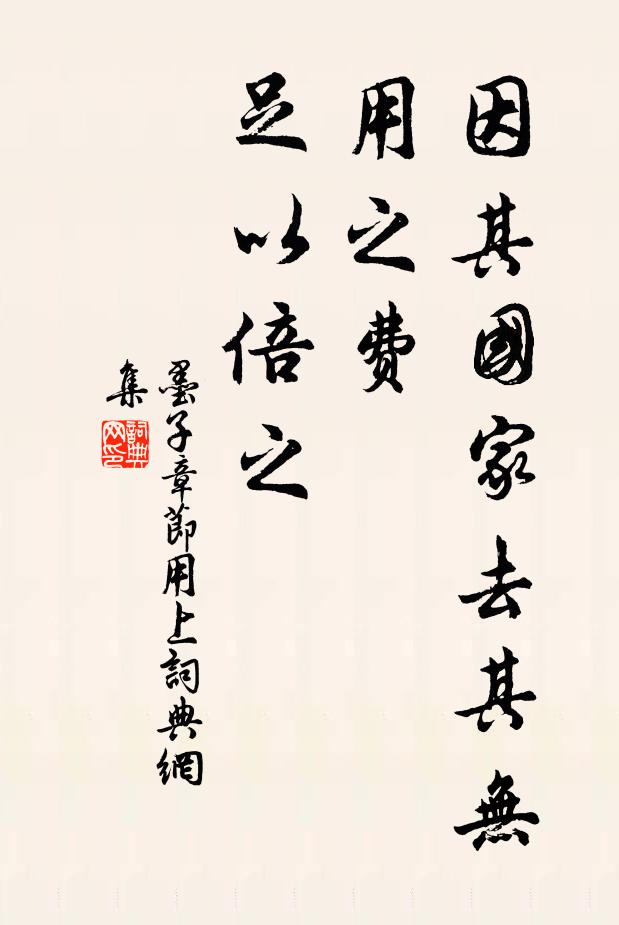 因其國家去其無
用之費
足以倍之
墨子章節用上詞典網
集
詞典
网印